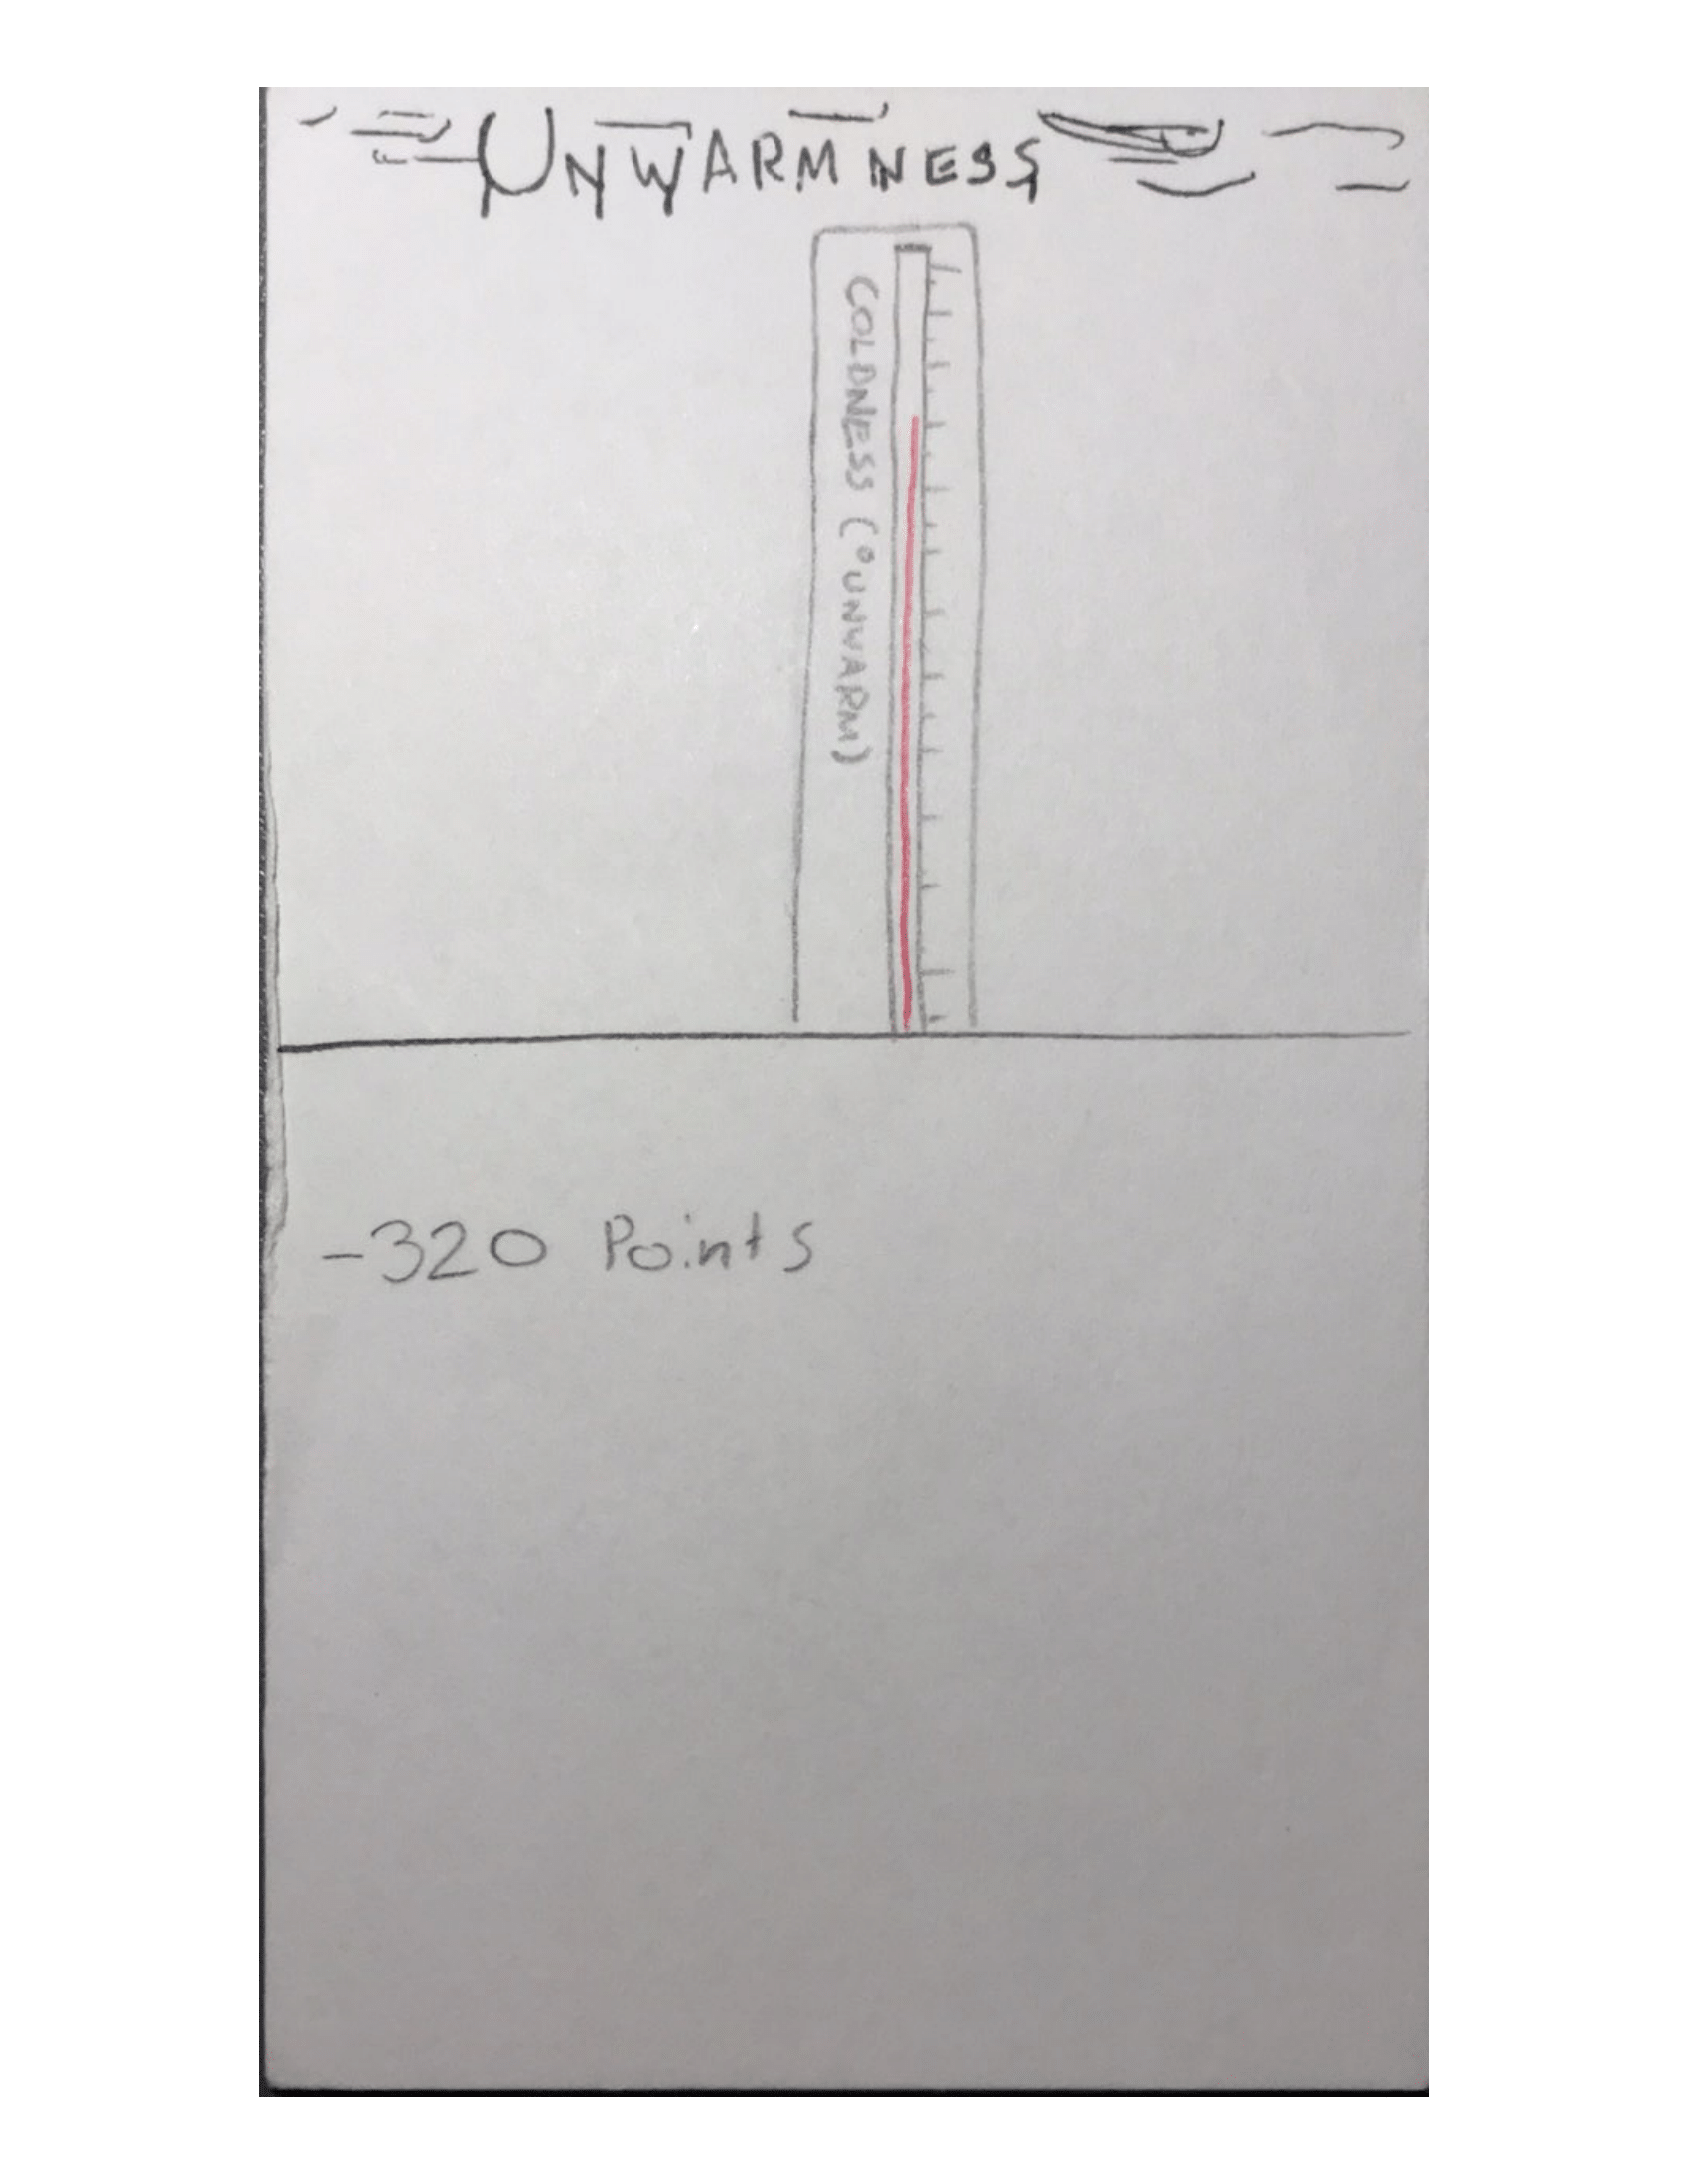 UNWARMNESS
COLDNESS (°UNWARM)
-320 Points